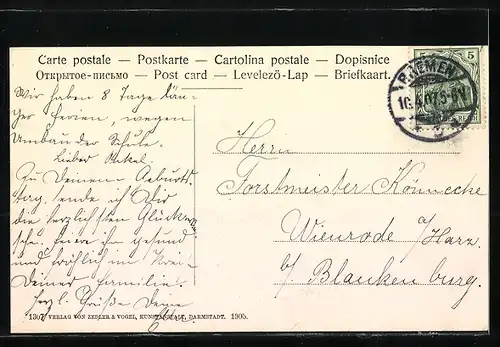 Carte postale — Postkarte — Cartolina postale — Dopisnice
Открытое-письмо — Post card — Levelező-Lap — Briefkaart.
5 5
BREMEN
Wir haben 8 Tage län-
ger Ferien, wegen
Umbau der Schule.
Lieber Onkel.
Zu Deinem Geburts-
tag, sende ich Dir
die herzlichsten Glückwün-
sche. Feiere ihn gesund
und fröhlich im Kreise
Deiner Familie.
Herzl. Grüße Deine
Herrn
Forstmeister Könnecke
Wienrode a/Harz.
b/ Blankenburg.
1307 VERLAG VON ZEDLER & VOGEL, KUNSTANSTALT, DARMSTADT. 1905.